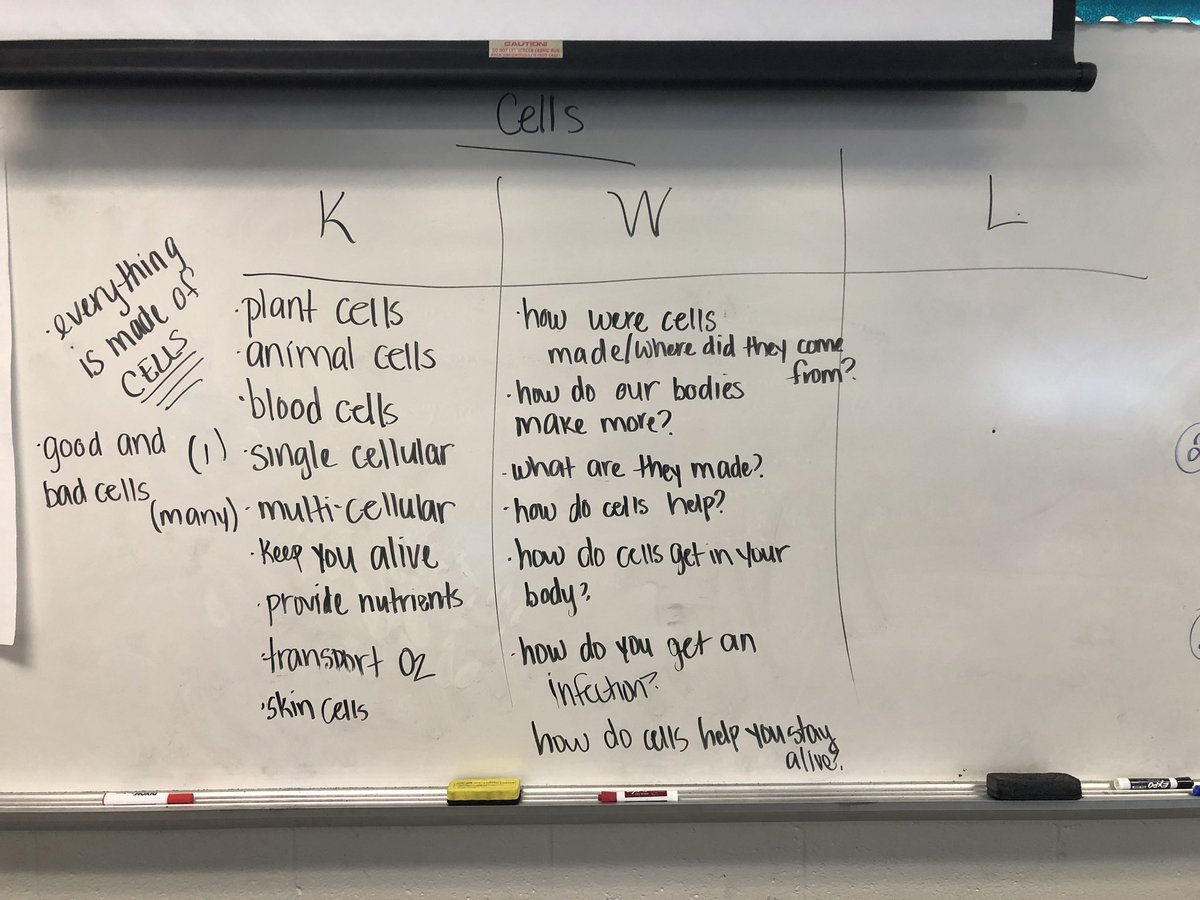 CAUTION!
Cells
K
W
L
·everything
is made of
CELLS
·good and
bad cells
·plant cells
·animal cells
·blood cells
(1) ·single cellular
(many) ·multi-cellular
·keep you alive
·provide nutrients
·transport O2
·skin cells
·how were cells
made/where did they come
from?
·how do our bodies
make more?
·what are they made?
·how do cells help?
·how do cells get in your
body?
·how do you get an
infection?
how do cells help you stay
alive?
EXPO